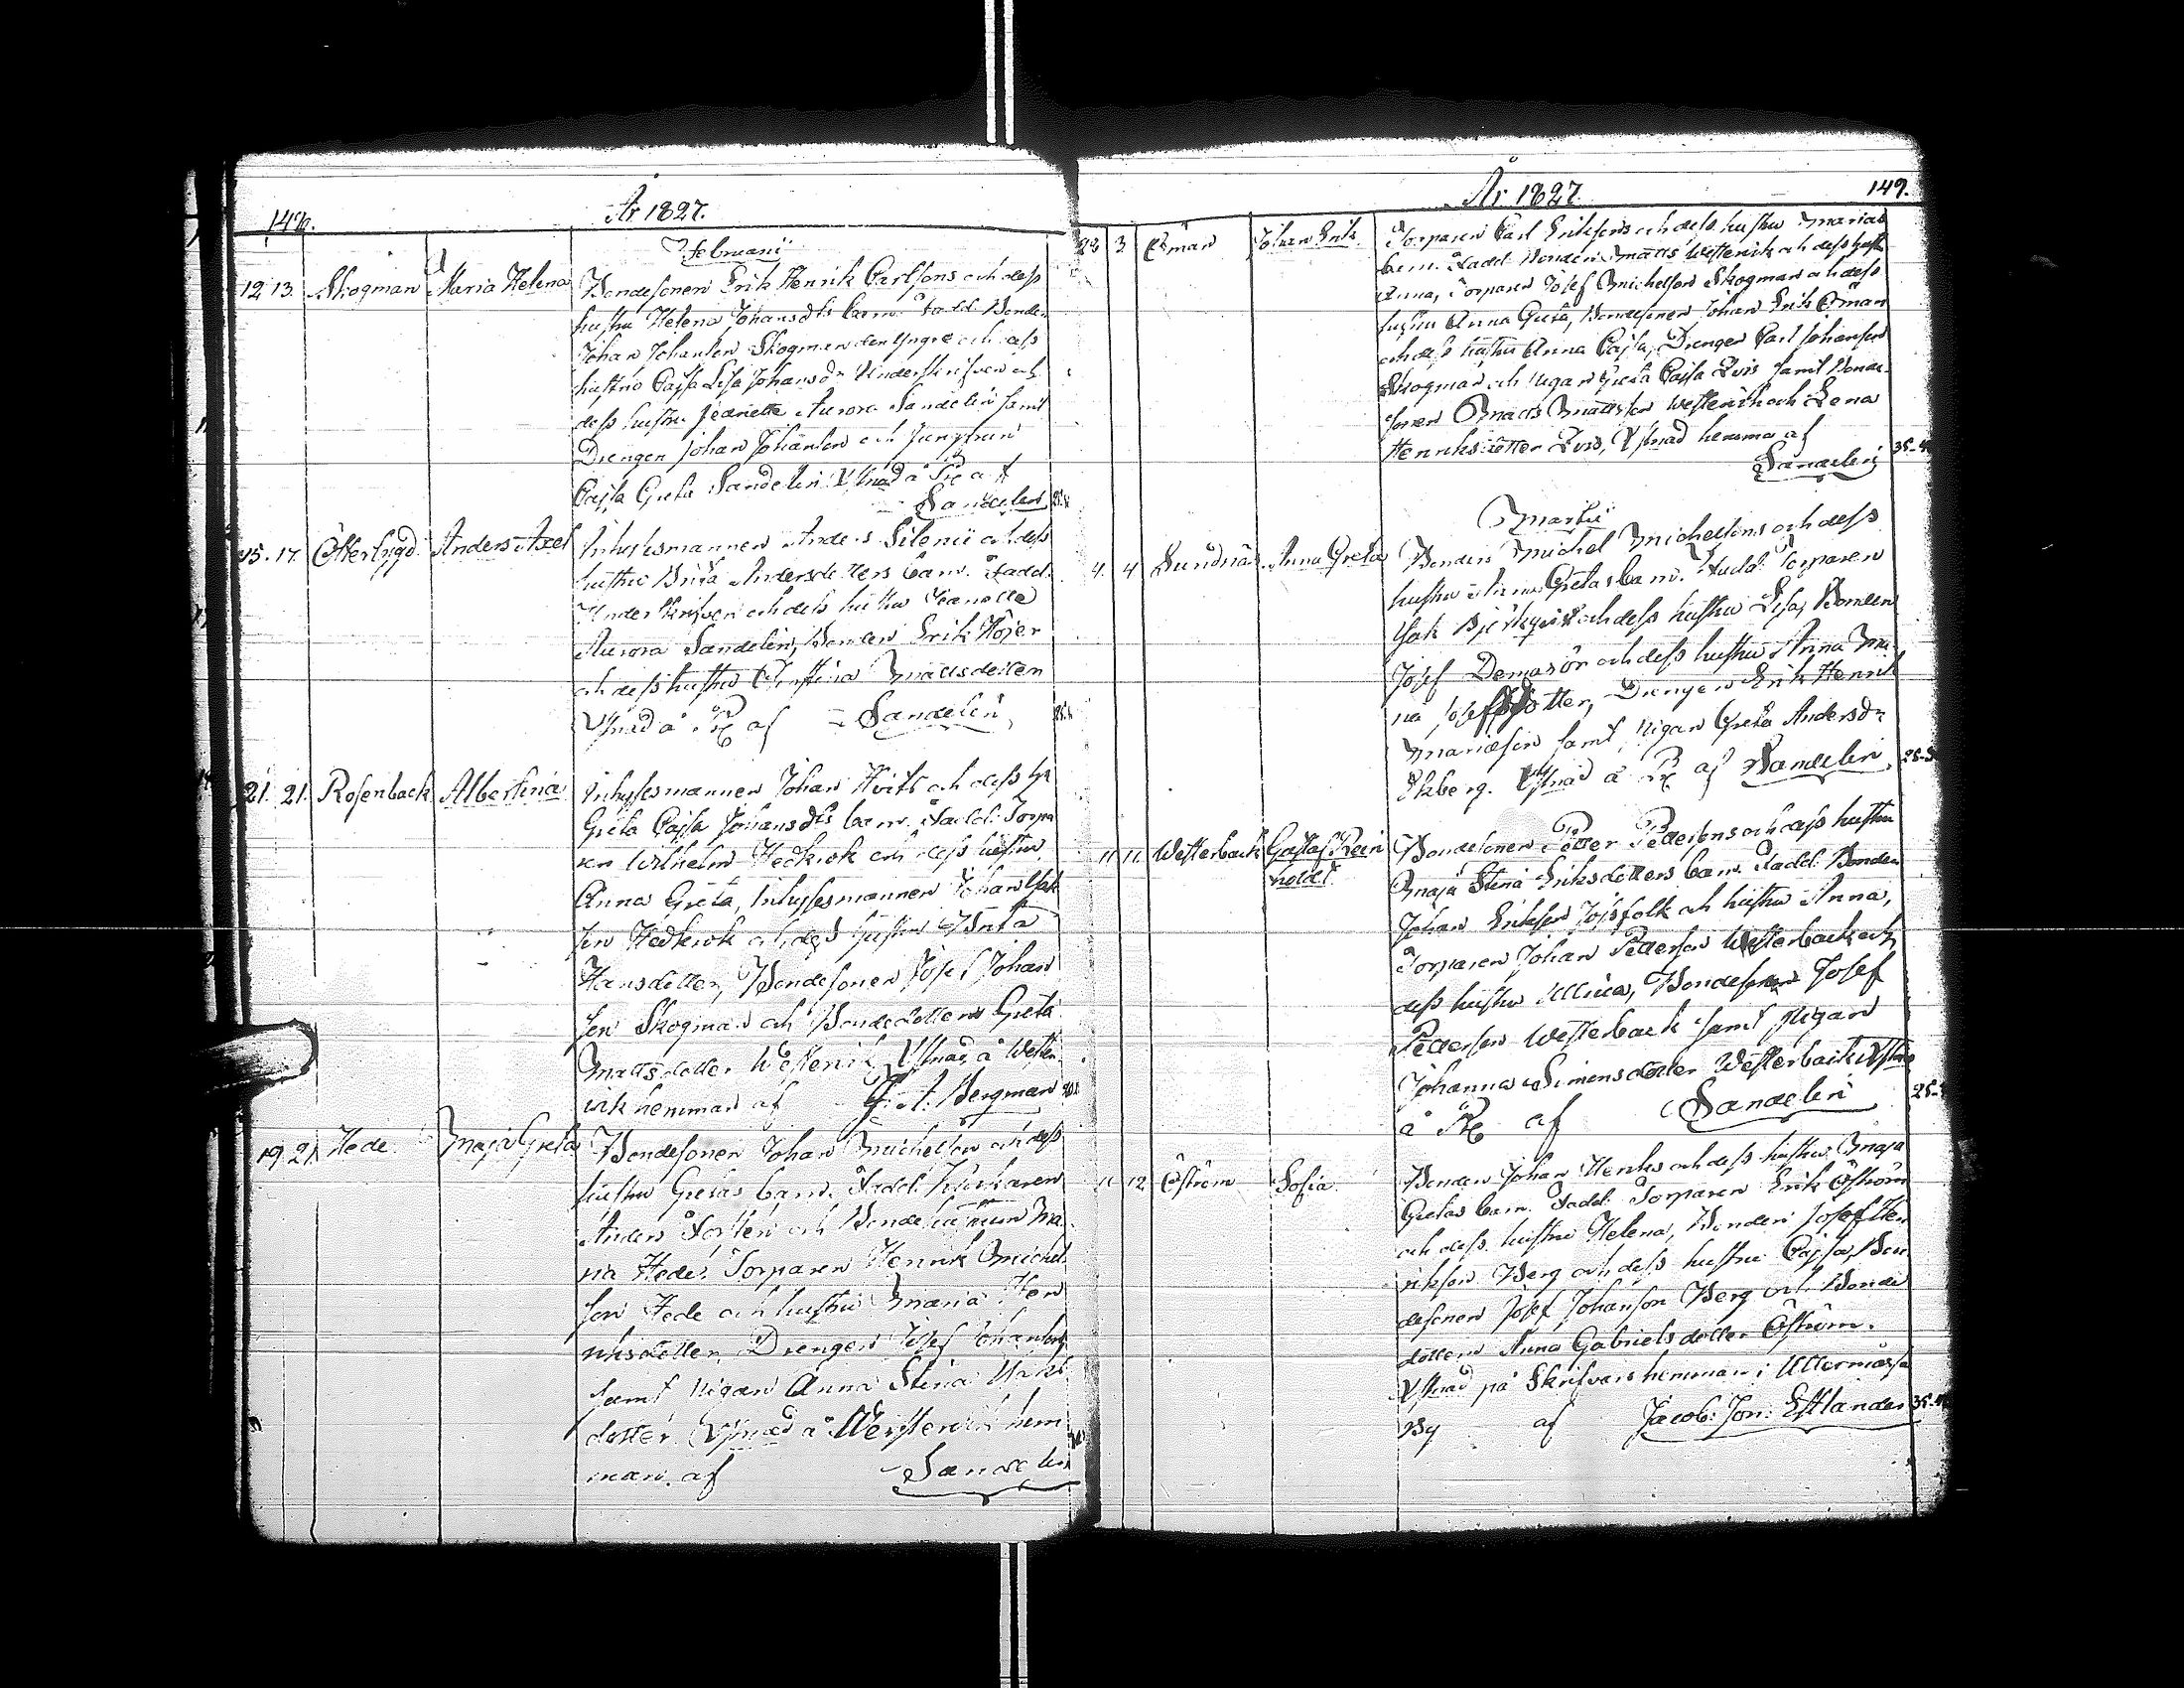 År 1827.
Februarii
12. 13. Skogman Maria Helena Bondesonen Erik Henrik Carlsons och dess
hustru Helena Johansdrs barn. Fadd. Bonden
Johan Johanson Skogman den yngre och dess
hustru Cajsa Lisa Johansdr Underskrifven och
dess hustru Jeanette Aurora Sandelin samt
Drengen Johan Johanson och Jungfrun
Cajsa Greta Sandelin. Xstnad å Pr. af
Sandelin
15. 17. Österbygd Anders Axel Inhysesmannen Anders Silenii och dess
hustru Brita Andersdotters barn. Fadd.
Underskrifven och dess hustru Jeanette
Aurora Sandelin, Bonden Erik Höjer
och dess hustru Christina Mattsdotter
Xstnad å Pr. af Sandelin
21. 21. Rosenback Albertina Inhysesmannen Johan Hvits och dess h.
Greta Cajsa Johansdrs barn. Fadd. Torpa
ren Wilhelm Hedkrok och dess hustru
Anna Greta, Inhysesmannen Johan Isak
son Hedkrok och dess hustru Brita
Hansdotter, Bondesonen Josef Johan
son Skogman och Bondedottern Greta
Mattsdotter Westervik, Xstnad å Wester
vik hemman af G. A. Bergman
19. 21. Hede Maja Greta Bondesonen Johan Michelson och dess
hustru Gretas barn. Fadd. Kyrkvären
Anders Forsten och Bondehustrun Ma
ria Hede, Torparen Henrik Michel
son Hede och hustru Maria Hen
riksdotter, Drengen Josef Johanson
samt Pigan Anna Stina Isaks
dotter. Xstnad å Westervik hem
man af Sandelin
År 1827. 149.
28 3 Öman Johan Erik Torparen Carl Eriksons och dess hustru Marias
barn. Fadd. Bonden Matts Westerik och dess hustru
Anna, Torparen Josef Michelson Skogman och dess
hustru Anna Greta, Bondesonen Johan Erik Öman
och dess hustru Anna Cajsa, Drengen Carl Johanson
Skogman och Pigan Greta Cajsa Qvis samt Bonde
sonen Matts Mattsson Westerik och Lena
Henriksdotter Qvis, Xstnad hemma af
Sandelin
Martii
4. 4 Sundnäs Anna Greta Bonden Michel Michelsons och dess
hustru Anna Gretas barn. Fadd. Torparen
Isak Björkqvist och dess hustru Lisa, Bonden
Josef Demasör och dess hustru Anna Ma
ria Josefsdotter, Drengen Erik Henrik
Mariæsin samt Pigan Greta Andersdr
Ekberg. Xstnad å Pr. af Sandelin
11 11. Westerback Gustaf Rein
holdt Bondesonen Petter Pettersons och dess hustru
Maja Stina Eriksdotters barn. Fadd. Bonden
Johan Erikson Jossfolk och hustru Anna,
Torparen Johan Petterson Westerback och
dess hustru Ulrica, Bondesonen Josef
Petterson Westerback samt Pigan
Johanna Simonsdotter Westerback Xstnad
å Pr. af Sandelin
11 12. Öström Sofia Bonden Johan Henriks och dess hustru Maja
Gretas barn. Fadd. Torparen Erik Öström
och dess hustru Helena, Bonden Josef Hen
rikson Berg och dess hustru Cajsa, Bon
desonen Josef Johanson Berg och Bonde
dottern Anna Gabrielsdotter Öström.
Xstnad på Skrifvars hemman i Yttermarks
By af Jacob. Jon. Estlander